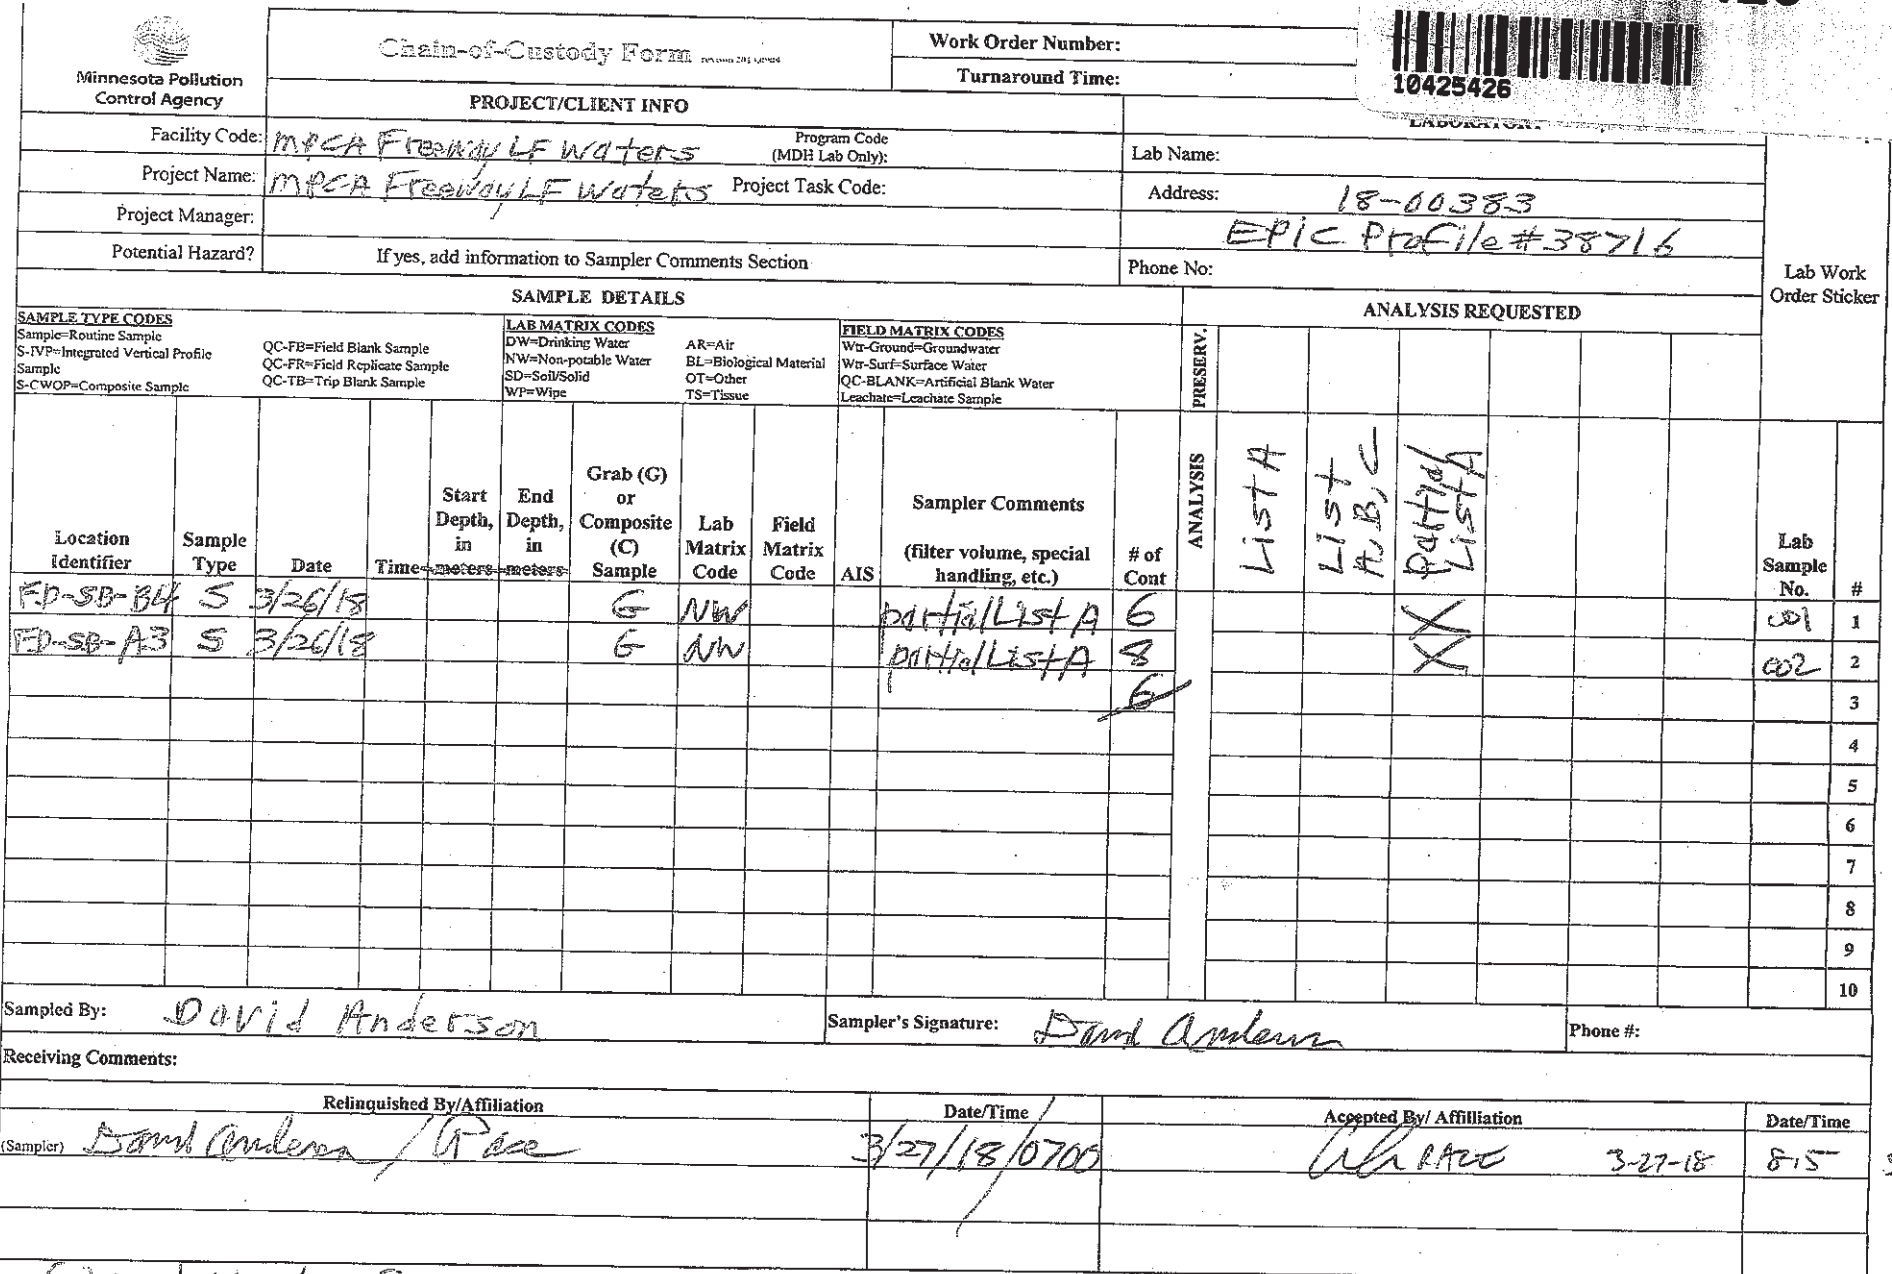 Minnesota Pollution
Control Agency
Chain-of-Custody Form
Work Order Number:
Turnaround Time:
10425426
PROJECT/CLIENT INFO
LABORATORY
Facility Code: MPCA Freeway LF Waters
Program Code
(MDH Lab Only):
Lab Name:
Project Name: MPCA Freeway LF Waters
Project Task Code:
Address: 18-00383
Project Manager:
EPIC Profile #38716
Potential Hazard?
If yes, add information to Sampler Comments Section
Phone No:
Lab Work
Order Sticker
SAMPLE DETAILS
ANALYSIS REQUESTED
SAMPLE TYPE CODES
Sample=Routine Sample
S-IVP=Integrated Vertical Profile
Sample
S-CWOP=Composite Sample
QC-FB=Field Blank Sample
QC-FR=Field Replicate Sample
QC-TB=Trip Blank Sample
LAB MATRIX CODES
DW=Drinking Water
NW=Non-potable Water
SD=Soil/Solid
WP=Wipe
AR=Air
BL=Biological Material
OT=Other
TS=Tissue
FIELD MATRIX CODES
Wtr-Ground=Groundwater
Wtr-Surf=Surface Water
QC-BLANK=Artificial Blank Water
Leachate=Leachate Sample
PRESERV.
Location
Identifier
Sample
Type
Date
Time
Start
Depth,
in
meters
End
Depth,
in
meters
Grab (G)
or
Composite
(C)
Sample
Lab
Matrix
Code
Field
Matrix
Code
AIS
Sampler Comments
(filter volume, special
handling, etc.)
# of
Cont
ANALYSIS
List A
List
A,B,C
Partial
List A
Lab
Sample
No.
#
FD-SB-B4 S 3/26/18 G NW partial List A 6 X 001 1
FD-SB-A3 S 3/26/18 G NW partial List A 8 X 002 2
6 3
4
5
6
7
8
9
10
Sampled By: David Anderson
Sampler's Signature: David Anderson
Phone #:
Receiving Comments:
Relinquished By/Affiliation
Date/Time
Accepted By/ Affilliation
Date/Time
(Sampler) David Anderson / Pace
3/27/18/0700
PACE 3-27-18
8:15